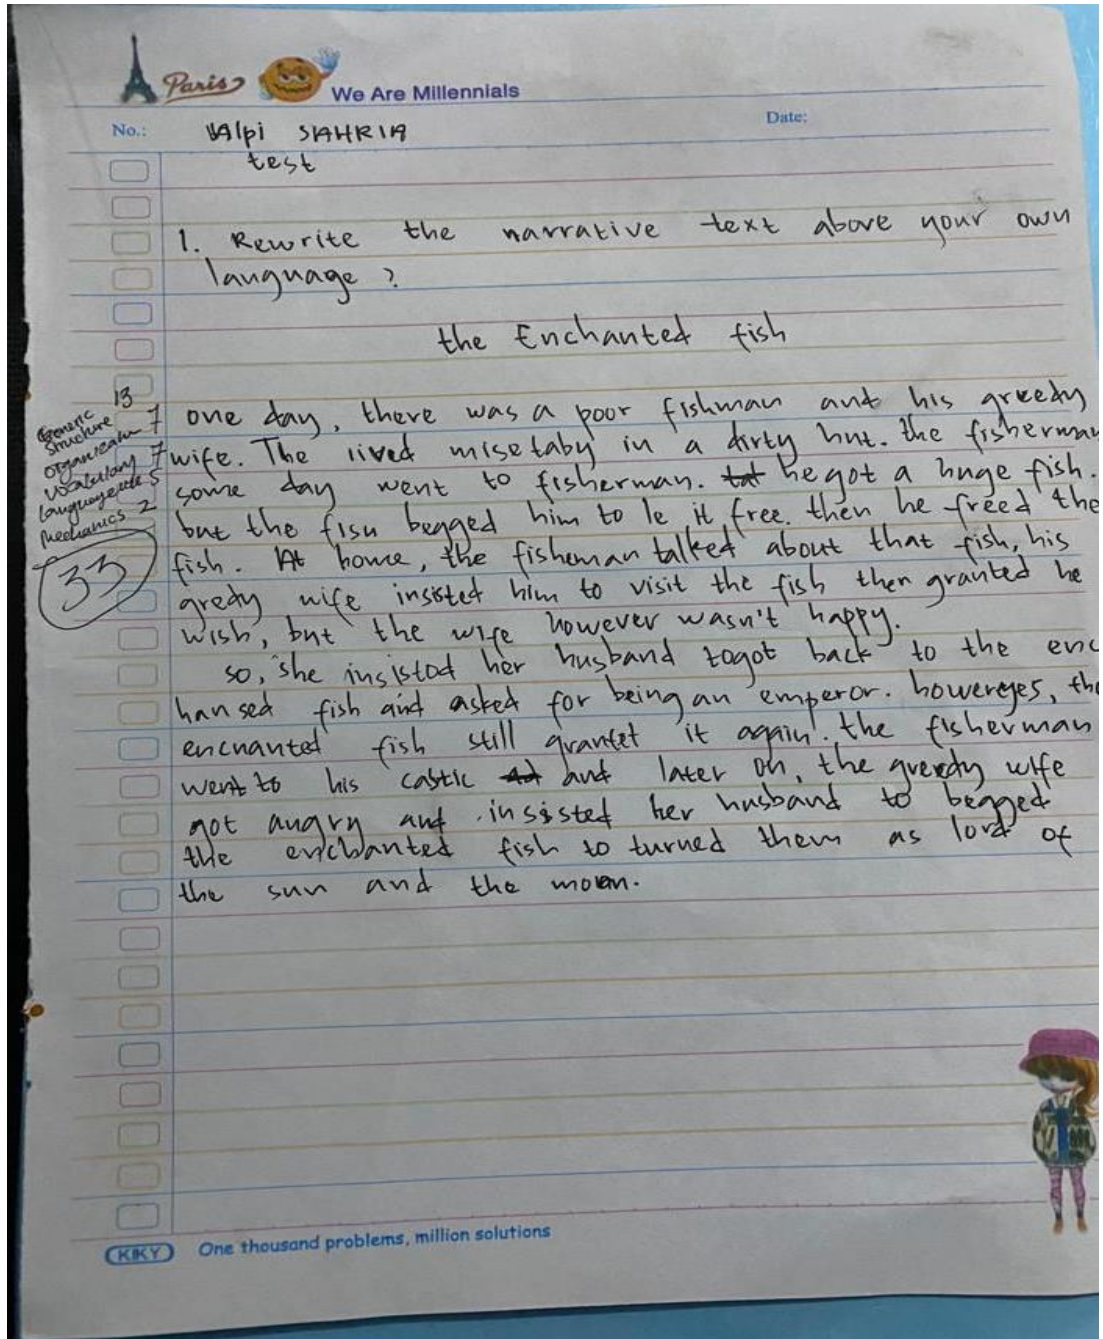 Paris
We Are Millennials
No.:
Date:
Valpi SAHRIA
test
1. Rewrite the narrative text above your own
language ?
the Enchanted fish
Generic structure 13
Organization 7
Vocabulary 7
Language use 5
Mechanics 2
33
one day, there was a poor fishman and his greedy
wife. The lived misetaby in a dirty hut. the fisherman
some day went to fisherman. he got a huge fish.
but the fish begged him to le it free. then he freed the
fish. At home, the fisheman talked about that fish, his
gredy wife insisted him to visit the fish then granted he
wish, but the wife however wasn't happy.
so, she insistod her husband togot back to the enc
hansed fish and asked for being an emperor. howereyes, the
enchanted fish still grantet it again. the fisherman
went to his castic and later on, the greedy wife
got angry and insisted her husband to begged
the enchanted fish to turned them as lord of
the sun and the moon.
KIKY
One thousand problems, million solutions